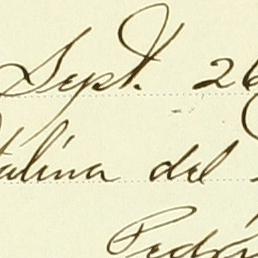 Sept. 26
talina del
Pedr